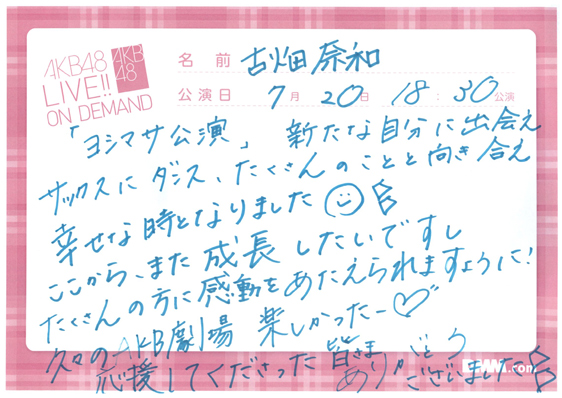 AKB48
LIVE!!
ON DEMAND
AKB
48
名前 古畑奈和
公演日 7月20日 18:30公演
「ヨシマサ公演」 新たな自分に出会え
サックスにダンス、たくさんのことと向き合え
幸せな時となりました
ここから、また成長したいですし
たくさんの方に感動をあたえられますように!
久々のAKB劇場 楽しかったー♡
応援してくださった皆さま ありがとうございました
DMM.com